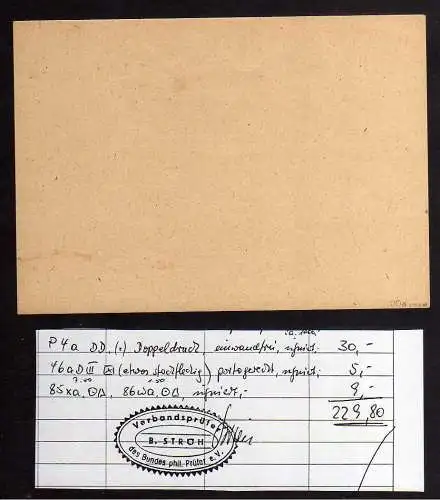 P4a DD, (*) Doppeldruck, einwandfrei, signiert,- 30,-
46a D III (etwas stockfleckig) portogerecht, signiert,- 5,-
85xa, 86wa, signiert,- 9,-
229,80
Verbandsprüfer
B. STRÖH
des Bundes phil. Prüfer e.V.